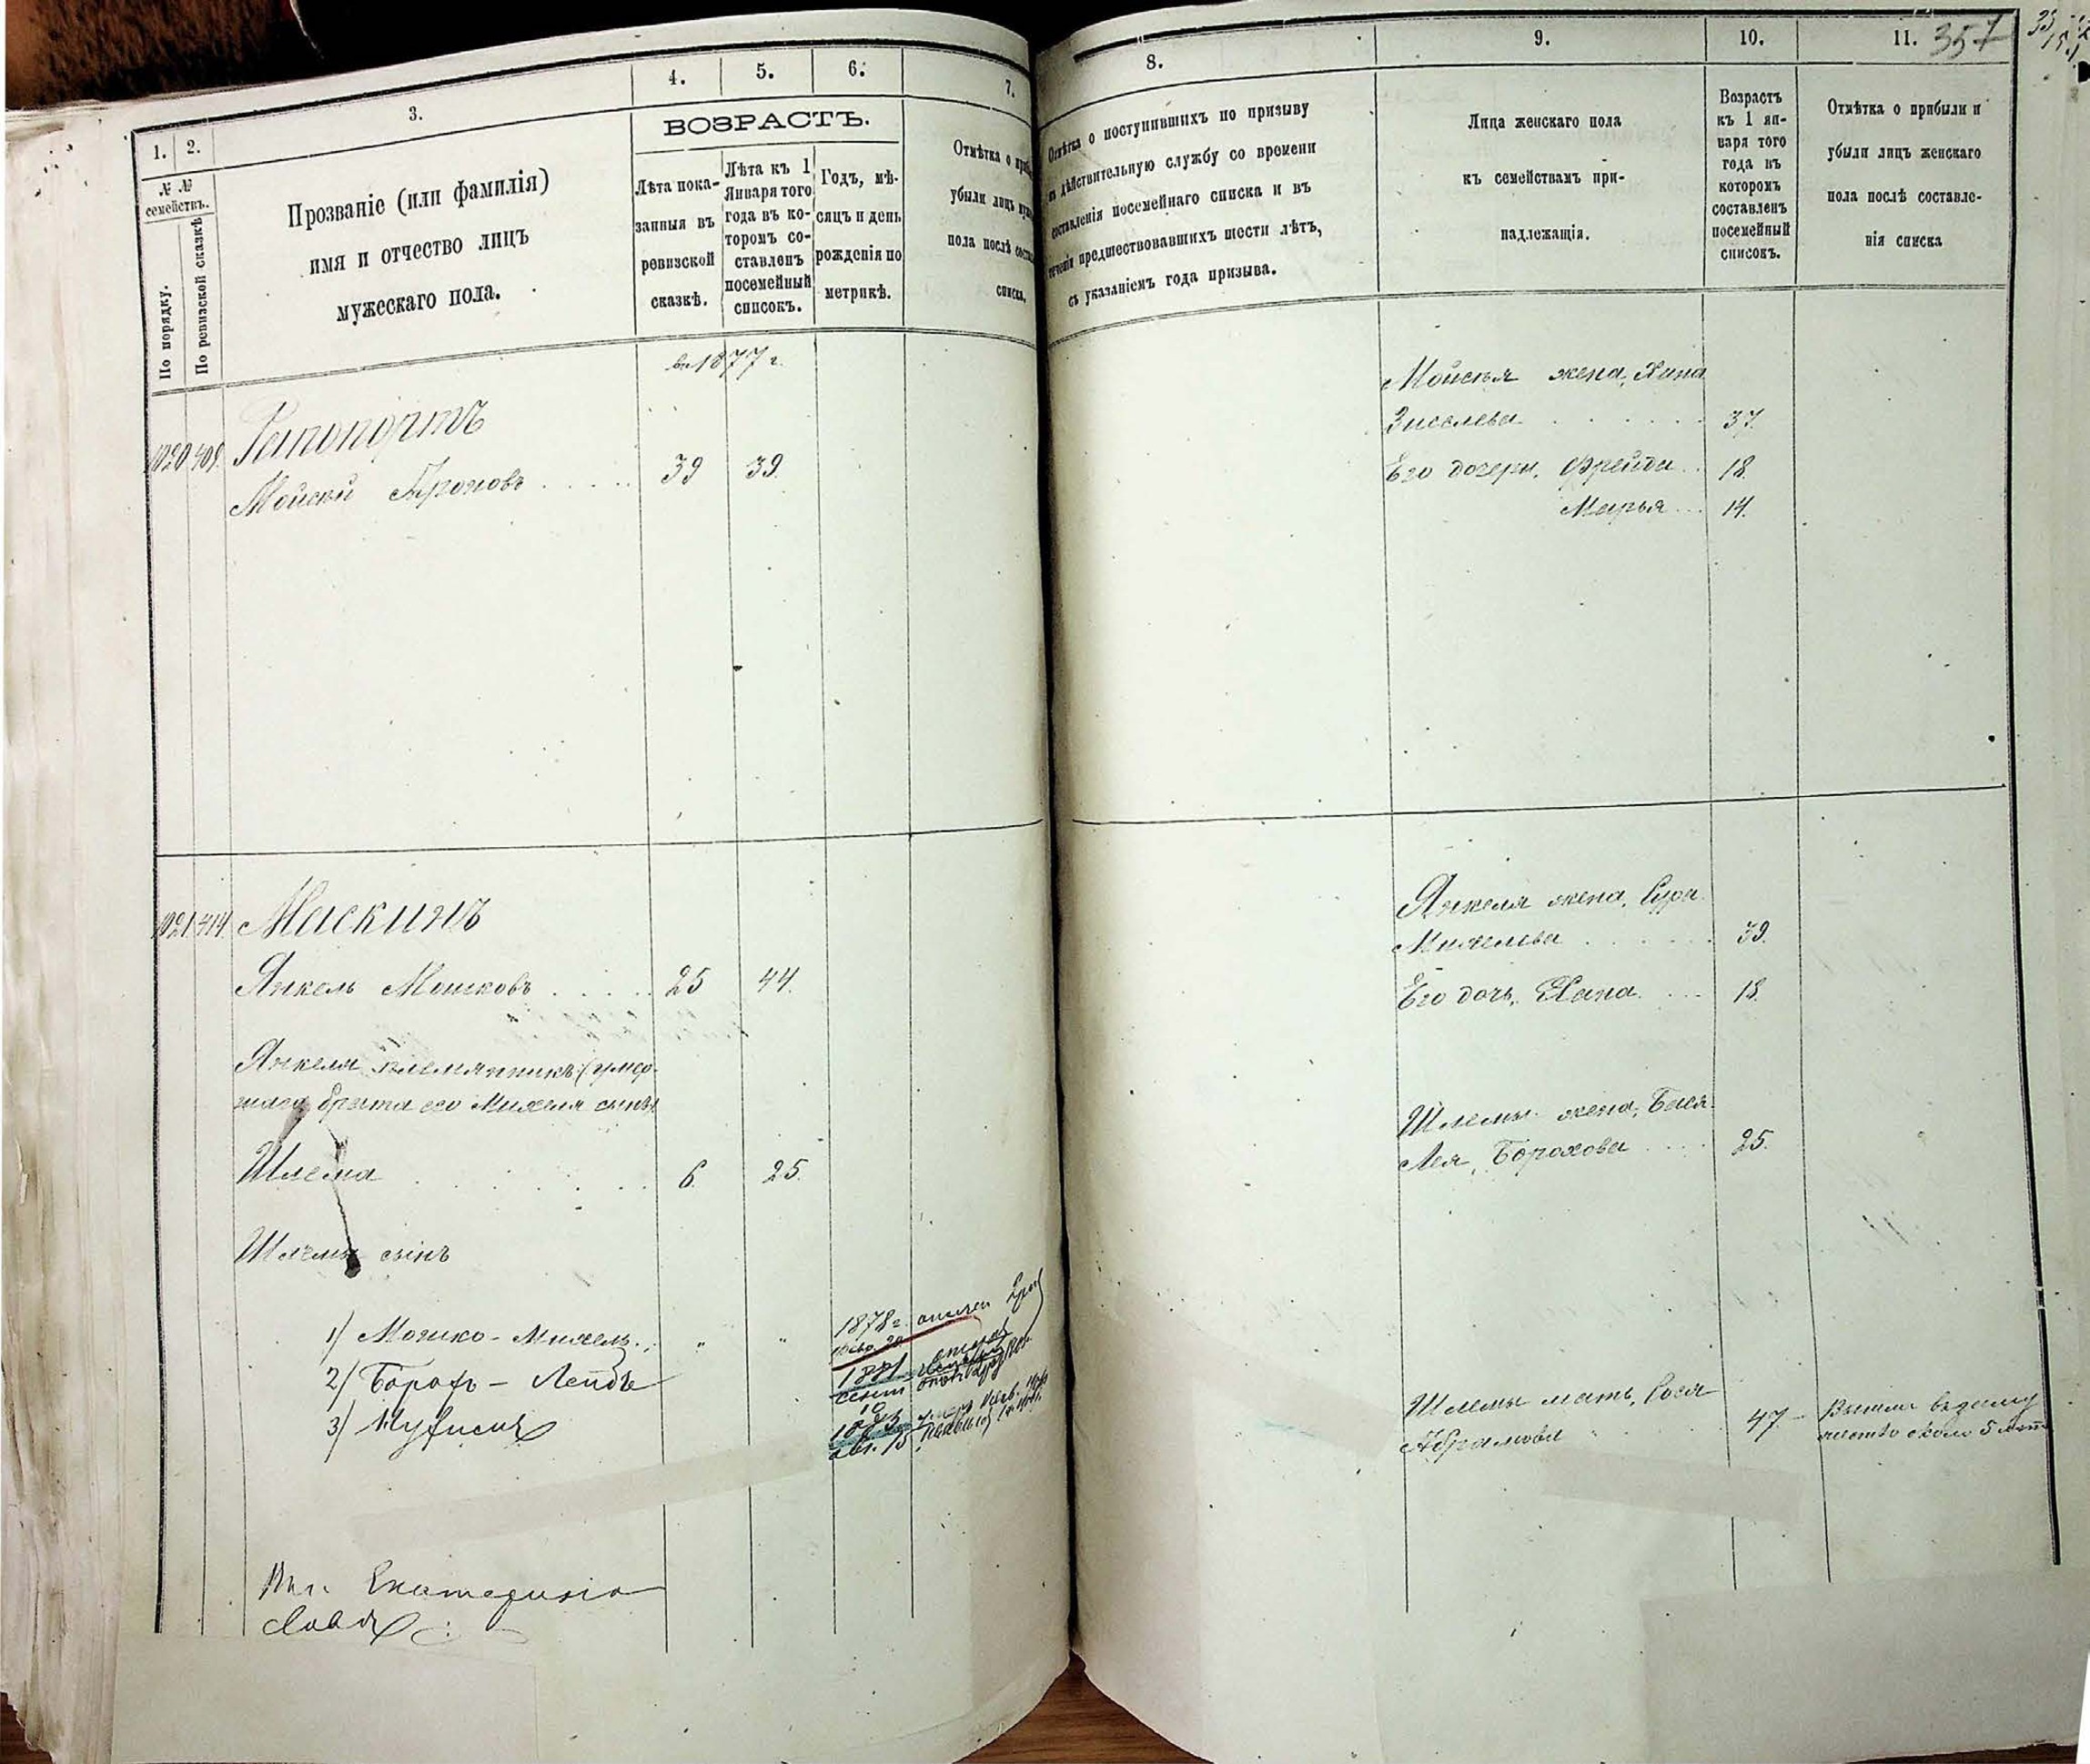 1.
2.
3.
4.
5.
6.
7.
№ №
семействъ.
По порядку.
По ревизской сказкѣ
Прозваніе (или фамилія)
имя и отчество лицъ
мужескаго пола.
ВОЗРАСТЪ.
Лѣта пока-
занныя въ
ревизской
сказкѣ.
Лѣта къ 1
Января того
года въ ко-
торомъ со-
ставленъ
посемейный
списокъ.
Годъ, мѣ-
сяцъ и день
рожденія по
метрикѣ.
Отмѣтка о
убыли лицъ
пола послѣ
списка.
въ 1877 г.
1020 409
Рапопортъ
Мойсей Ароновъ 39 39
1021 414 Маскинъ
Янкель Мошковъ 25 44
Янкеля племянникъ (умер-
шаго брата его Михеля сынъ)
Шлема 6 25
Шлемы сынъ
1) Мошко-Михель " " 1878 г.
2) Борохъ-Лейбъ 1881
10
3) 1883
авг. 15
Екатерино
слав
8.
9.
10.
11.
357
Отмѣтка о поступившихъ по призыву
дѣйствительную службу со времени
составленія посемейнаго списка и въ
теченіи предшествовавшихъ шести лѣтъ,
съ указаніемъ года призыва.
Лица женскаго пола
къ семействамъ при-
надлежащія.
Возрастъ
къ 1 ян-
варя того
года въ
которомъ
составленъ
посемейный
списокъ.
Отмѣтка о прибыли и
убыли лицъ женскаго
пола послѣ составле-
нія списка
Мойсея жена, Хана
Зиселева 37
Его дочери, Фрейда 18
Марья 14
Янкеля жена, Сура
Михелева 39
Его дочь, Хана 18
Шлемы жена, Бася-
Лея, Борохова 25
Шлемы мать, Рося
Абрамова 47 Вышла въ
около 5 лѣт